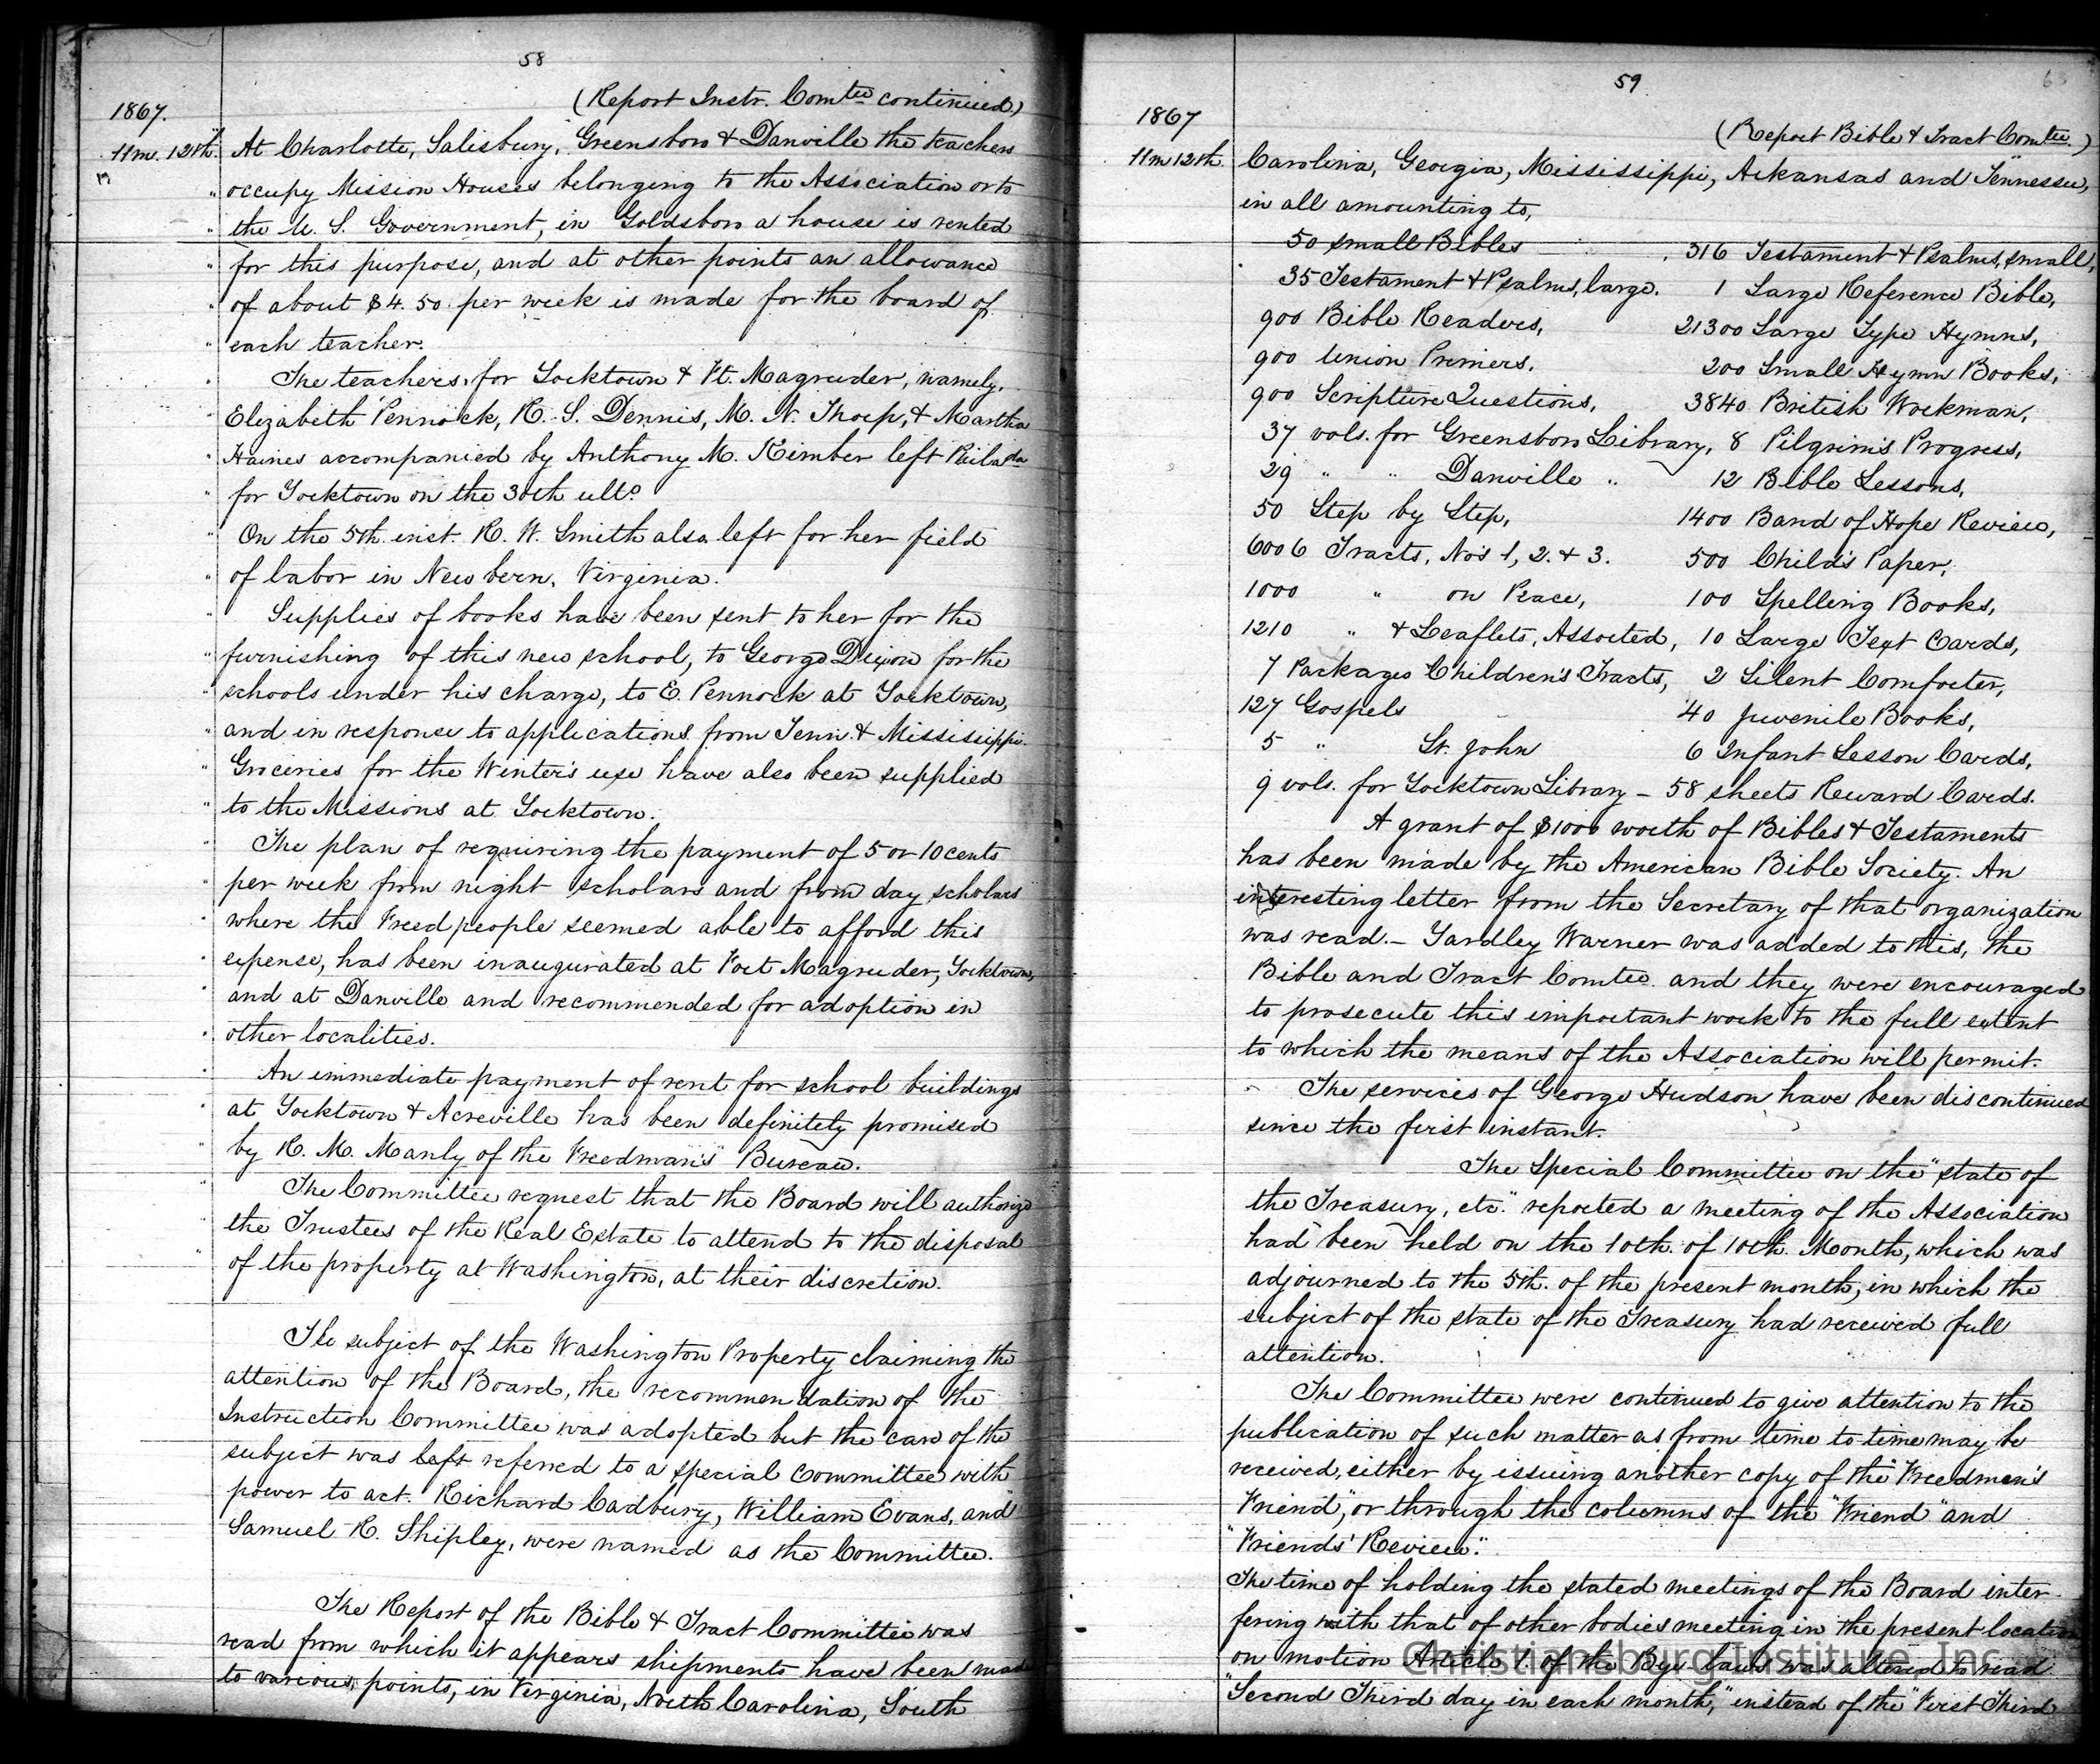 58
(Report Instr. Comtee continued)
1867.
11m. 12th. At Charlotte, Salisbury, Greensboro & Danville the teachers
" occupy Mission Houses belonging to the Association or to
" the U. S. Government, in Goldsboro a house is rented
" for this purpose, and at other points an allowance
" of about $4.50 per week is made for the board of
" each teacher.
" The teachers for Yorktown & Ft. Magruder, namely,
" Elizabeth Pennock, R. S. Dennis, M. N. Thorp, & Martha
" Haines accompanied by Anthony M. Kimber left Philada
" for Yorktown on the 30th ulto.
" On the 5th inst. R. W. Smith also left for her field
" of labor in New bern, Virginia.
" Supplies of books have been sent to her for the
" furnishing of this new school, to George Dixon for the
" schools under his charge, to E. Pennock at Yorktown,
" and in response to applications from Tenn. & Mississippi.
" Groceries for the Winter's use have also been supplied
" to the Missions at Yorktown.
" The plan of requiring the payment of 5 or 10 cents
" per week from night scholars and from day scholars
" where the Freedpeople seemed able to afford this
" expense, has been inaugurated at Fort Magruder, Yorktown,
" and at Danville and recommended for adoption in
" other localities.
" An immediate payment of rent for school buildings
" at Yorktown & Acreville has been definitely promised
" by R. M. Manly of the Freedman's Bureau.
" The Committee request that the Board will authorize
" the Trustees of the Real Estate to attend to the disposal
" of the property at Washington, at their discretion.
The subject of the Washington Property claiming the
attention of the Board, the recommendation of the
Instruction Committee was adopted but the care of the
subject was left referred to a special committee with
power to act. Richard Cadbury, William Evans, and
Samuel R. Shipley, were named as the Committee.
The Report of the Bible & Tract Committee was
read from which it appears shipments have been made
to various points, in Virginia, North Carolina, South
59
(Report Bible & Tract Comtee.)
1867
11m 12th. Carolina, Georgia, Mississippi, Arkansas and Tennessee,
in all amounting to,
50 small Bibles 316 Testament & Psalms, small,
35 Testament & Psalms, large. 1 Large Reference Bible,
900 Bible Readers, 21300 Large Type Hymns,
900 Union Primers. 200 Small Hymn Books,
900 Scripture Questions, 3840 British Workman,
37 vols. for Greensboro Library, 8 Pilgrim's Progress,
29 " " Danville " 12 Bible Lessons,
50 Step by Step, 1400 Band of Hope Review,
6006 Tracts, Nos 1, 2. & 3. 500 Child's Paper,
1000 " on Peace, 100 Spelling Books,
1210 " & Leaflets, Assorted, 10 Large Text Cards,
7 Packages Children's Tracts, 2 Silent Comforter,
127 Gospels 40 Juvenile Books,
5 " St. John 6 Infant Lesson Cards,
9 vols. for Yorktown Library – 58 sheets Reward Cards.
A grant of $1000 worth of Bibles & Testaments
has been made by the American Bible Society. An
interesting letter from the Secretary of that organization
was read. – Yardley Warner was added to this, the
Bible and Tract Comtee. and they were encouraged
to prosecute this important work to the full extent
to which the means of the Association will permit.
The services of George Hudson have been discontinued
since the first instant.
The Special Committee on the "state of
the Treasury, etc." reported a meeting of the Association
had been held on the 10th. of 10th. Month, which was
adjourned to the 5th. of the present month, in which the
subject of the state of the Treasury had received full
attention.
The Committee were continued to give attention to the
publication of such matter as from time to time may be
received, either by issuing another copy of the "Freedmen's
Friend", or through the columns of the "Friend" and
"Friends' Review".
The time of holding the stated meetings of the Board inter-
fering with that of other bodies meeting in the present location
on motion Article 1. of the Bye-laws was altered to read
"Second Third day in each month," instead of the "First Third
Christiansburg Institute, Inc.